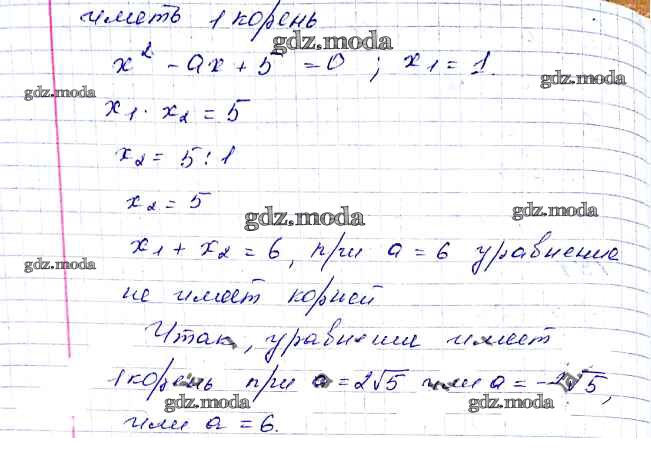 иметь 1 корень
gdz.moda
x² - ax + 5 = 0 ; x₁ = 1.
gdz.moda
gdz.moda
x₁ · x₂ = 5
x₂ = 5 : 1
x₂ = 5
gdz.moda
gdz.moda
x₁ + x₂ = 6, при a = 6 уравнение
gdz.moda
не имеет корней
Итак, уравнение имеет
1 корень при a = 2√5 или a = -2√5,
gdz.moda
gdz.moda
или a = 6.